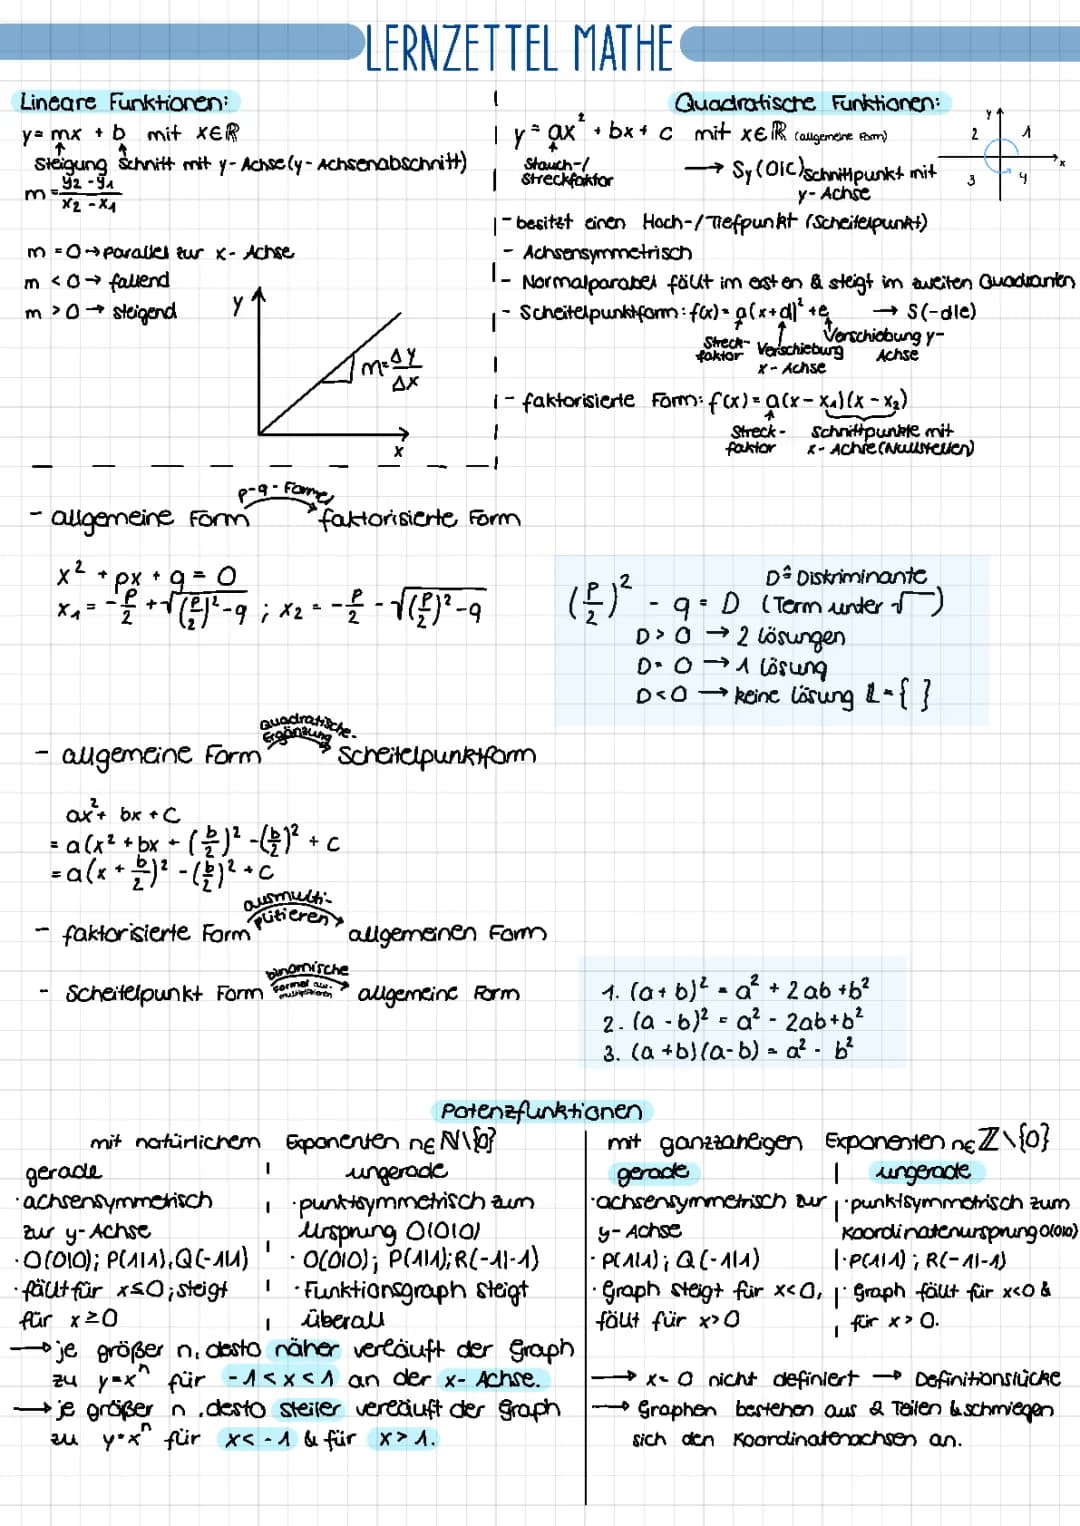 LERNZETTEL MATHE
Lineare Funktionen:
y= mx + b mit x∈ℝ
Steigung Schnitt mit y-Achse (y-Achsenabschnitt)
m = (y₂ - y₁)/(x₂ - x₁)
m = 0 → parallel zur x-Achse
m < 0 → fallend
m > 0 → steigend
y
m = Δy/Δx
x
Quadratische Funktionen:
y = ax² + bx + c mit x∈ℝ (allgemeine Form)
Stauch-/
Streckfaktor
→ Sy (0|c) Schnittpunkt mit
y-Achse
y
2 1
x
3 4
- besitzt einen Hoch-/Tiefpunkt (Scheitelpunkt)
- Achsensymmetrisch
- Normalparabel fällt im ersten & steigt im zweiten Quadranten
- Scheitelpunktform: f(x) = a(x+d)² + e → S(-d|e)
Streck-
faktor
Verschiebung
x-Achse
Verschiebung y-
Achse
- faktorisierte Form: f(x) = a(x-x₁)(x-x₂)
Streck-
faktor
Schnittpunkte mit
x-Achse (Nullstellen)
p-q-Formel
- allgemeine Form faktorisierte Form
x² + px + q = 0
x₁ = -p/2 + √((p/2)² - q) ; x₂ = -p/2 - √((p/2)² - q)
(p/2)² - q = D
D ≙ Diskriminante
(Term unter √)
D > 0 → 2 Lösungen
D = 0 → 1 Lösung
D < 0 → keine Lösung 𝕃 = { }
Quadratische-
Ergänzung
- allgemeine Form Scheitelpunktform
ax² + bx + c
= a(x² + bx + (b/2)² - (b/2)² + c
= a(x + b/2)² - (b/2)² + c
ausmulti-
plitieren
- faktorisierte Form allgemeinen Form
binomische
Formel aus-
multiplizieren
- Scheitelpunkt Form allgemeine Form
1. (a + b)² = a² + 2ab + b²
2. (a - b)² = a² - 2ab + b²
3. (a + b)(a - b) = a² - b²
Potenzfunktionen
mit natürlichem Exponenten n∈ℕ\{0}
gerade
· achsensymmetrisch
zur y-Achse
· O(0|0); P(1|1), Q(-1|1)
· fällt für x≤0; steigt
für x≥0
ungerade
· punktsymmetrisch zum
Ursprung O(0|0)
· O(0|0); P(1|1); R(-1|-1)
· Funktionsgraph steigt
überall
→ je größer n, desto näher verläuft der Graph
zu y=xⁿ für -1<x<1 an der x-Achse.
→ je größer n, desto steiler verläuft der Graph
zu y=xⁿ für x<-1 & für x>1.
mit ganzzaheigen Exponenten n∈ℤ\{0}
gerade
· achsensymmetrisch zur
y-Achse
· P(1|1); Q(-1|1)
· Graph steigt für x<0,
fällt für x>0
ungerade
· punktsymmetrisch zum
Koordinatenursprung O(0|0)
· P(1|1); R(-1|-1)
· Graph fällt für x<0 &
für x>0.
→ x=0 nicht definiert → Definitionslücke
→ Graphen bestehen aus 2 Teilen & schmiegen
sich den Koordinatenachsen an.